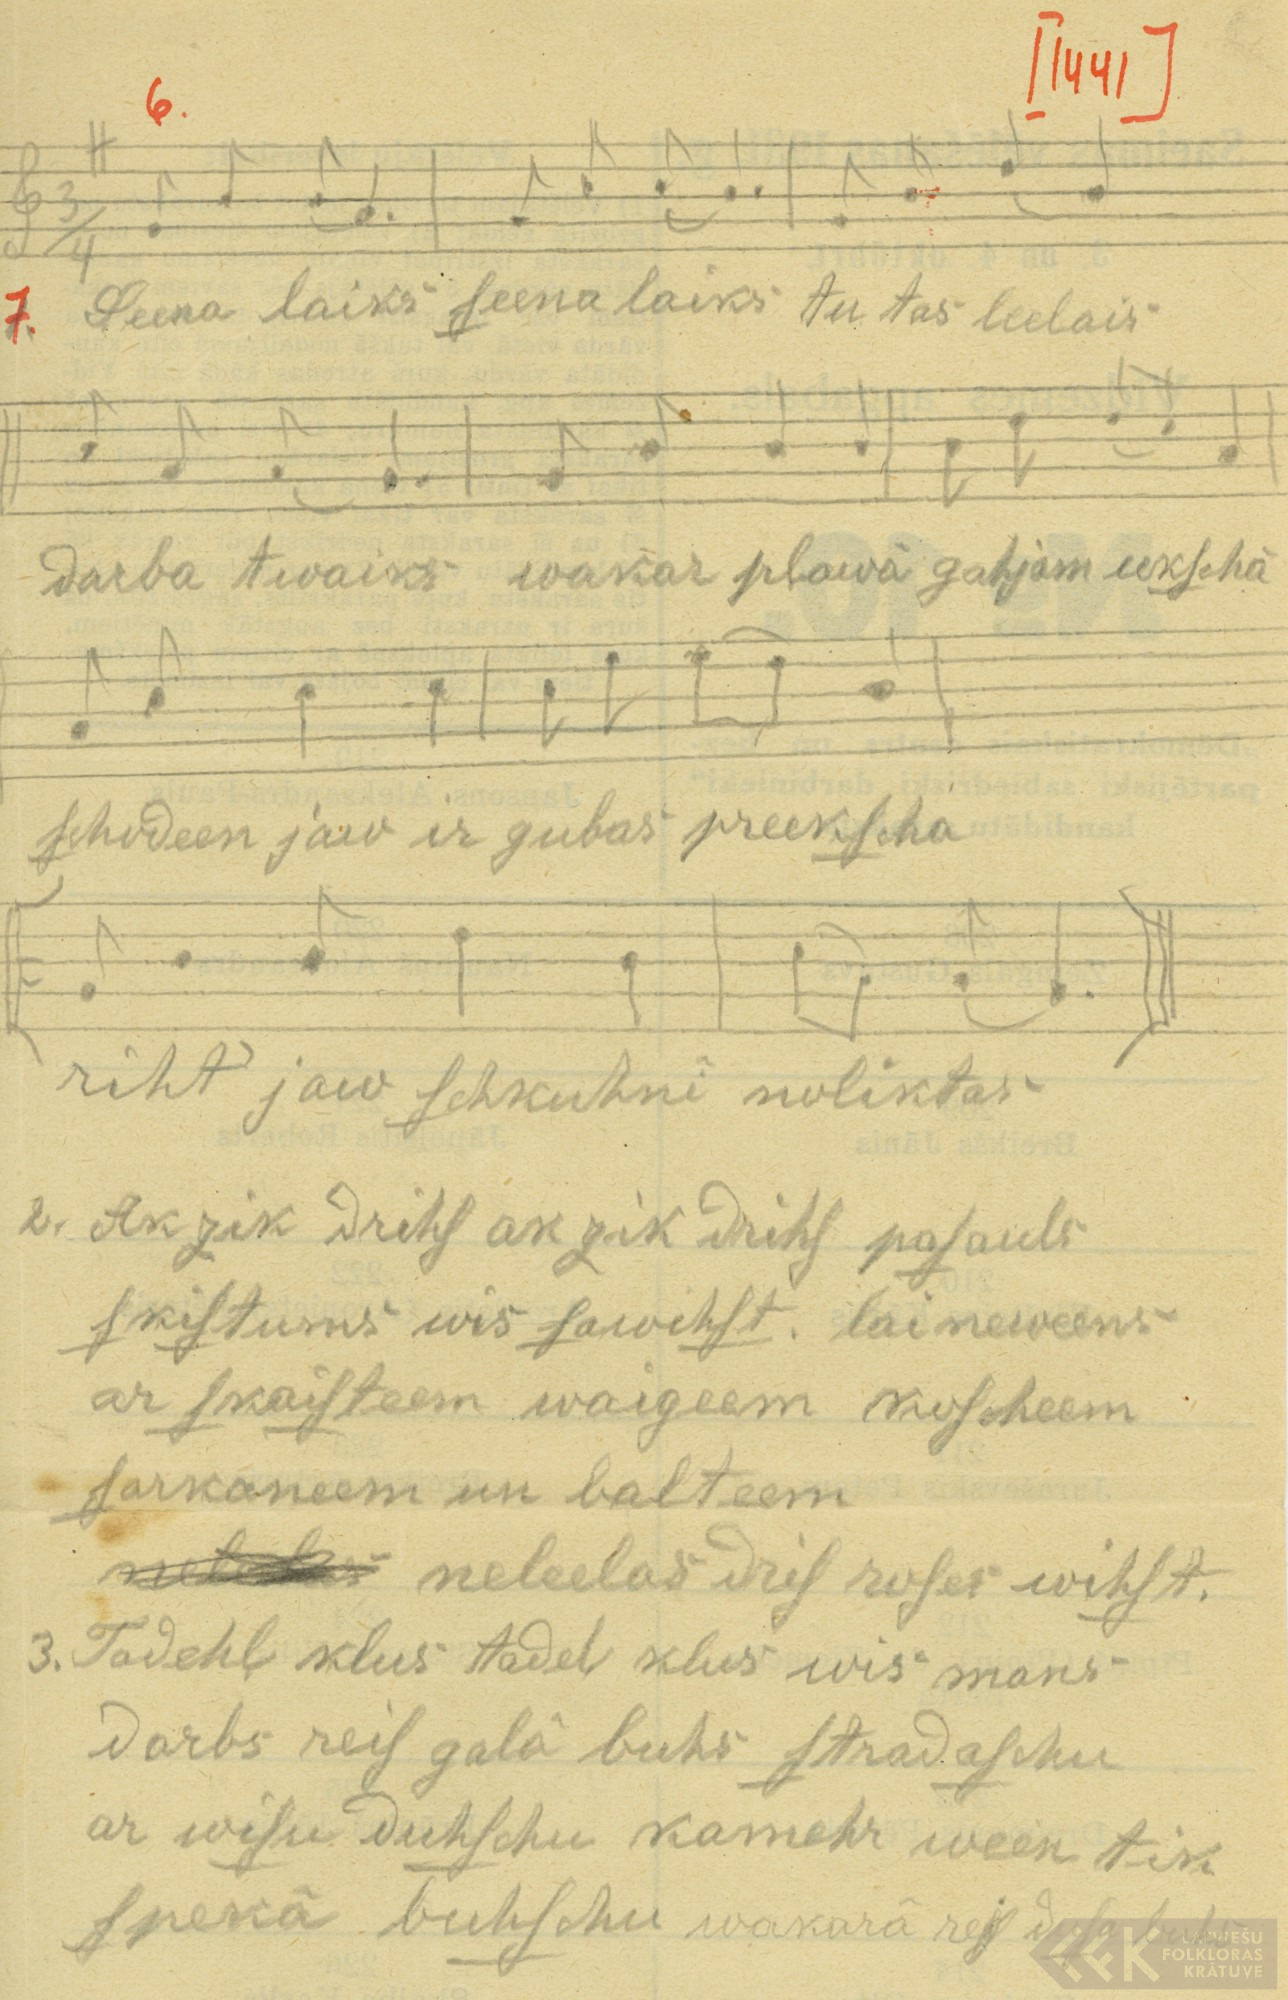 [1441]
6.
3/4
7. Seena laiks seena laiks tu tas leelais
darba twaiks wakar plawā gahjām ukschā
schodeen jaw ir gubas preekscha
riht' jaw schkuhnī noliktas
2. Ak zik drihs ak zik drihs pasauls
skistums wis sawihst. lai neweens
ar skaisteem waigeem koscheem
sarkaneem un balteem
neleelas dris roses wihst.
3. Tadehl klus tadel klus wis mans
darbs reis galā buhs stradaschu
ar wisu duhschu kamehr ween tik
spekā buhschu wakarā reis dusa buhs
LATVIEŠU
FOLKLORAS
KRĀTUVE